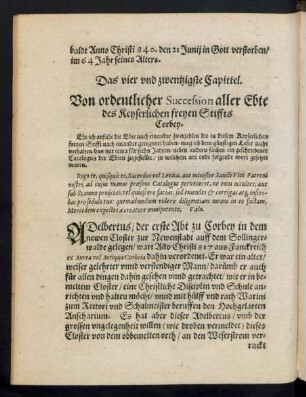 baldt Anno Christi 840. den 21 Junij in Gott verstorben/
im 64 Jahr seines Alters.
Das vier vnd zwentzigste Capittel.
Von ordentlicher Succession aller Ebte
des Keyserlichen freyen Stiffts
Corbey.
Ehe ich anfahe die Ebte nach einander zu erzehlen die in diesem Keyserlichen
freyen Stifft nach einander geregieret haben/ mag ich dem günstigen Leser nicht
verhalten das mir etwa für sechs Jahren neben andern sachen ein geschriebener
Catalogus der Ebten zugestellet, in welchem am ende folgende wort gesetzt
waren.
Rogo te, quisquis es, Sacerdos vel Levita, aut minister Sancti Viti Patroni
nostri, ad cujus manus praesens Catalogus pervenerit, ne eum occultes, aut
sub Scamno projicias, quod quidam facere, sed emendes & corrigas atq; inseri-
bas pro
Mercedem expectes creatore omnipotente, Vale.
ADelbertus/ der erste Abt zu Corbey in dem
newen Closter zur Newenstadt auff dem Sollinger
walde gelegen/ wart Aō Christi 817 aus Franckreich
ex Aurea vel Antiqua Corbeia dahin verordenet. Er war ein alter/
weiser gelehrter vnnd verstendiger Mann/ darumb er auch
für allen dingen dahin gesehen vnnd getrachtet/ wie er in be-
meltem Closter/ eine Christliche Disciplin vnd Schule an-
richten vnd halten möcht/ vnnd mit hülff vnd rath Warini
zum Rectori vnd Schulmeister beruffen den Hochgelarten
Anscharium. Es hat aber dieser Adelbertus/ vmb der
grossen vngelegenheit willen/ wie droben vermeldet/ dieses
Closter von dem obbemelten orth/ an den Weserstrom ver-
ruckt